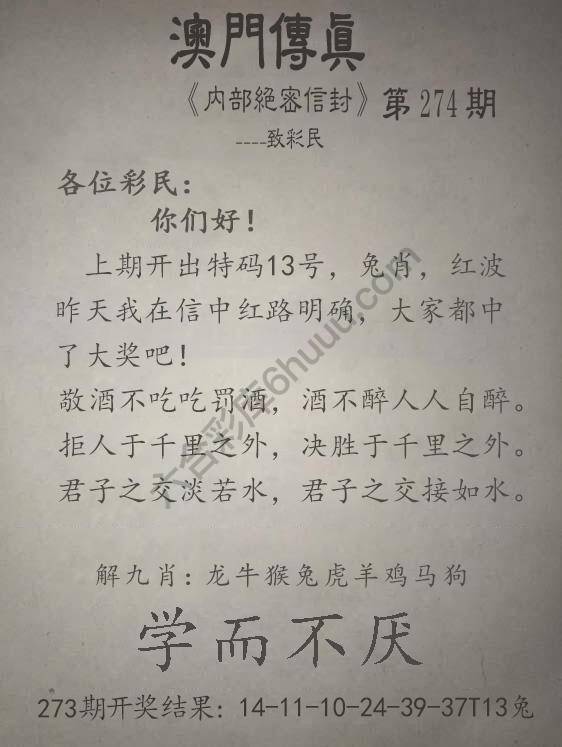 澳門傳眞
《内部絕密信封》第274期
----致彩民
各位彩民：
你们好！
上期开出特码13号，兔肖，红波
昨天我在信中红路明确，大家都中
了大奖吧！
敬酒不吃吃罚酒，酒不醉人人自醉。
拒人于千里之外，决胜于千里之外。
君子之交淡若水，君子之交接如水。
六合彩库6huuu.com
解九肖：龙牛猴兔虎羊鸡马狗
学而不厌
273期开奖结果：14-11-10-24-39-37T13兔